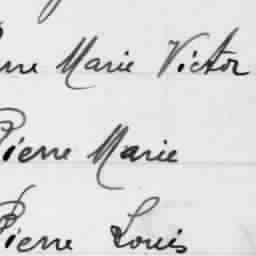 Marie Victor
Pierre Marie
Pierre Louis